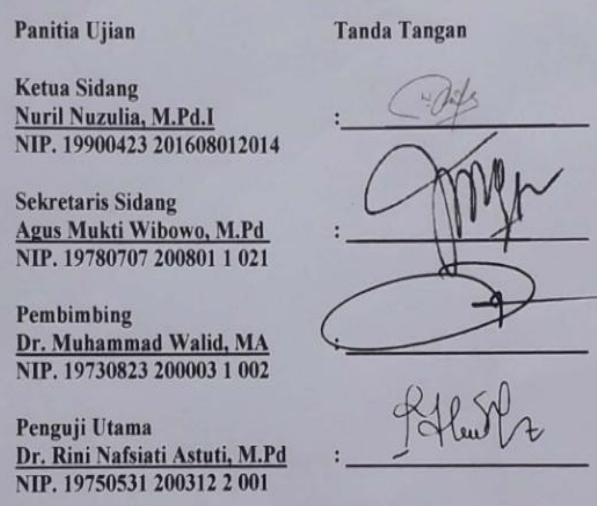 Panitia Ujian Tanda Tangan
Ketua Sidang
Nuril Nuzulia, M.Pd.I :
NIP. 19900423 201608012014
Sekretaris Sidang
Agus Mukti Wibowo, M.Pd :
NIP. 19780707 200801 1 021
Pembimbing
Dr. Muhammad Walid, MA :
NIP. 19730823 200003 1 002
Penguji Utama
Dr. Rini Nafsiati Astuti, M.Pd :
NIP. 19750531 200312 2 001